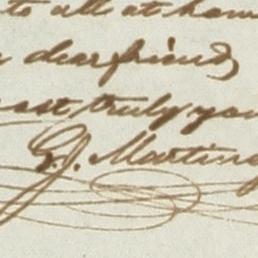 to all at hom
dear friend
most truly you
G. J. Martin